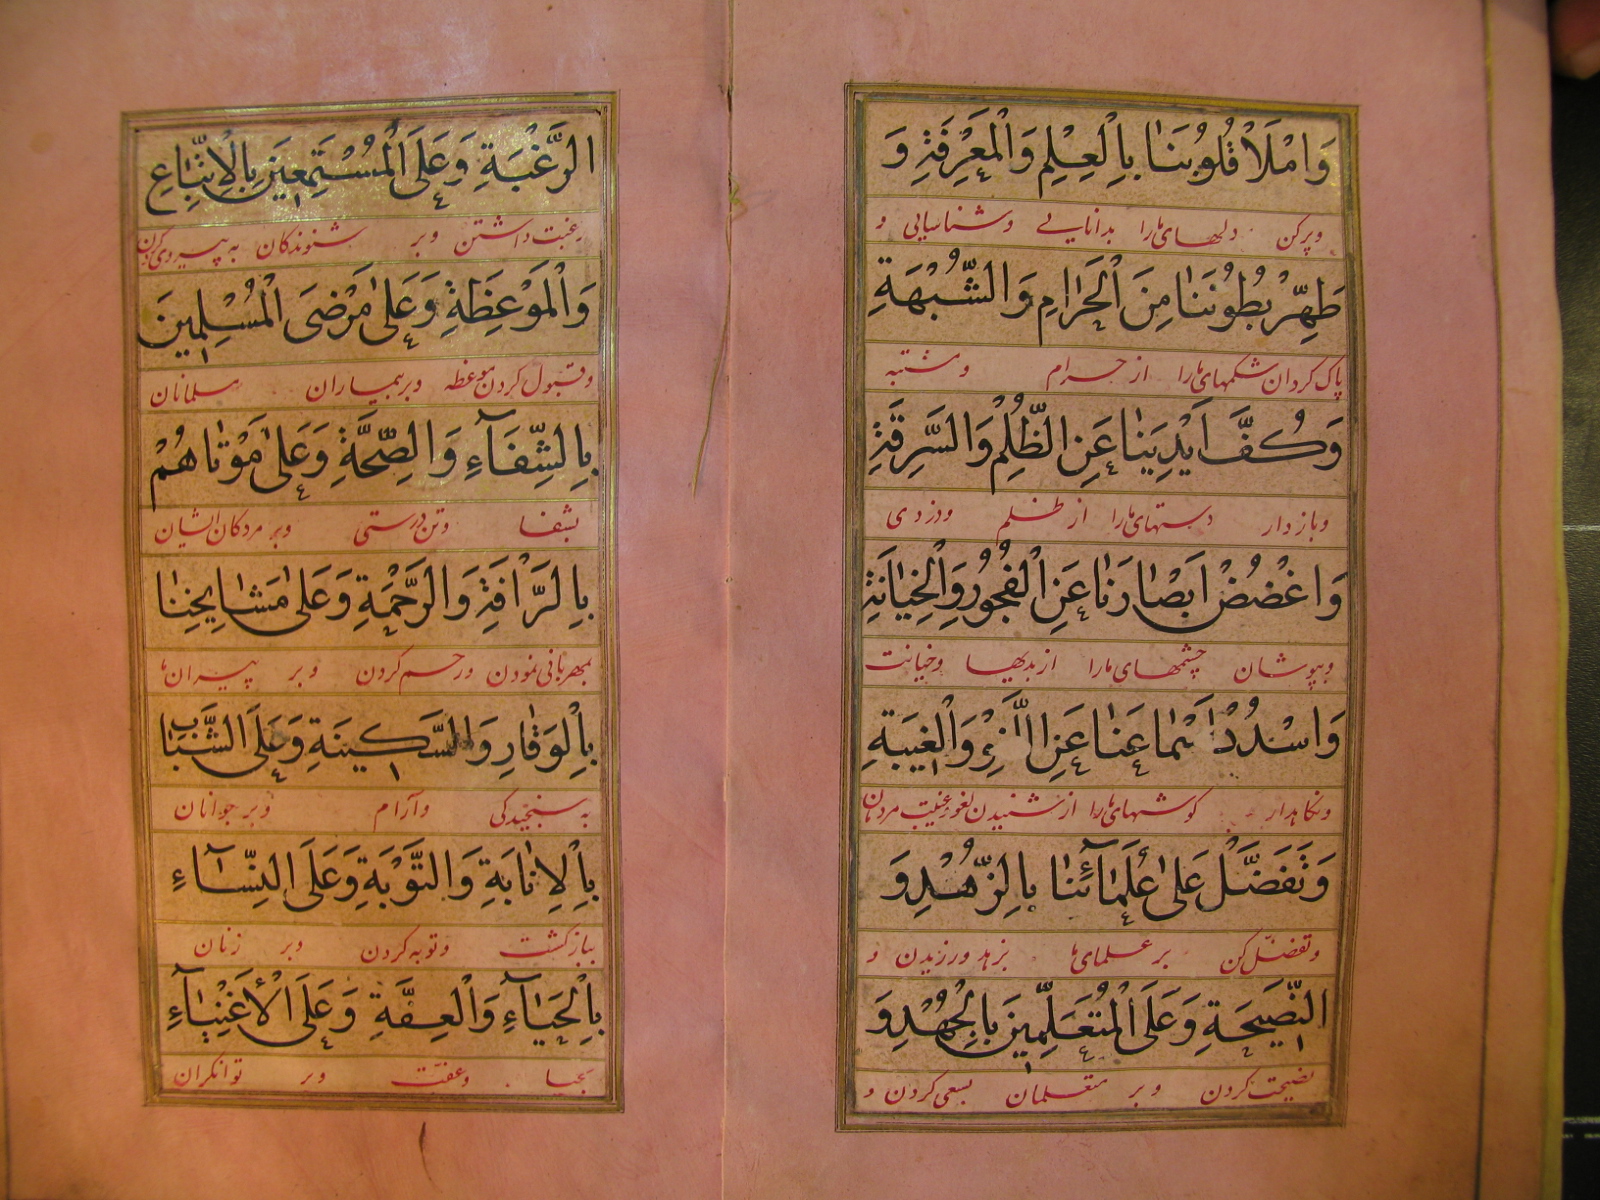 وَامْلَأْ قُلُوبَنَا بِالْعِلْمِ وَالْمَعْرِفَةِ وَ
و پرکن دلهای ما را بدانایی و شناسایی و
طَهِّرْ بُطُونَنَا مِنَ الْحَرَامِ وَالشُّبْهَةِ
پاک گردان شکمهای ما را از حرام و مشتبه
وَكُفَّ اَيْدِيَنَا عَنِ الظُّلْمِ وَالسَّرِقَةِ
و بازدار دستهای ما را از ظلم و دزدی
وَاغْضُضْ اَبْصَارَنَا عَنِ الْفُجُورِ وَالْخِيَانَةِ
و بپوشان چشمهای ما را از بدیها و خیانت
وَاسْدُدْ اَسْمَاعَنَا عَنِ اللَّغْوِ وَالْغِيبَةِ
و نگاهدار گوشهای ما را از شنیدن لغو و غیبت مردمان
وَتَفَضَّلْ عَلَى عُلَمَآئِنَا بِالزُّهْدِ وَ
و تفضّل کن بر علمای ما بزهد ورزیدن و
النَّصِيحَةِ وَعَلَى الْمُتَعَلِّمِينَ بِالْجُهْدِ وَ
نصیحت کردن و بر متعلمان بسعی کردن و
الرَّغْبَةِ وَعَلَى الْمُسْتَمِعِينَ بِالْاِتِّبَاعِ
رغبت داشتن و بر شنوندگان به پیروی کردن
وَالْمَوْعِظَةِ وَعَلَى مَرْضَى الْمُسْلِمِينَ
و قبول کردن موعظه و بر بیماران مسلمانان
بِالشِّفَآءِ وَالصِّحَّةِ وَعَلَى مَوْتَاهُمْ
بشفا و تن درستی و بر مردکان ایشان
بِالرَّأْفَةِ وَالرَّحْمَةِ وَعَلَى مَشَايِخِنَا
بمهربانی نمودن و رحم کردن و بر پیران ما
بِالْوَقَارِ وَالسَّكِينَةِ وَعَلَى الشَّبَابِ
به سنجیدگی و آرام و بر جوانان
بِالْاِنَابَةِ وَالتَّوْبَةِ وَعَلَى النِّسَآءِ
ببازگشت و توبه کردن و بر زنان
بِالْحَيَآءِ وَالْعِفَّةِ وَعَلَى الْأَغْنِيَآءِ
بحیا و عفّت و بر توانگران